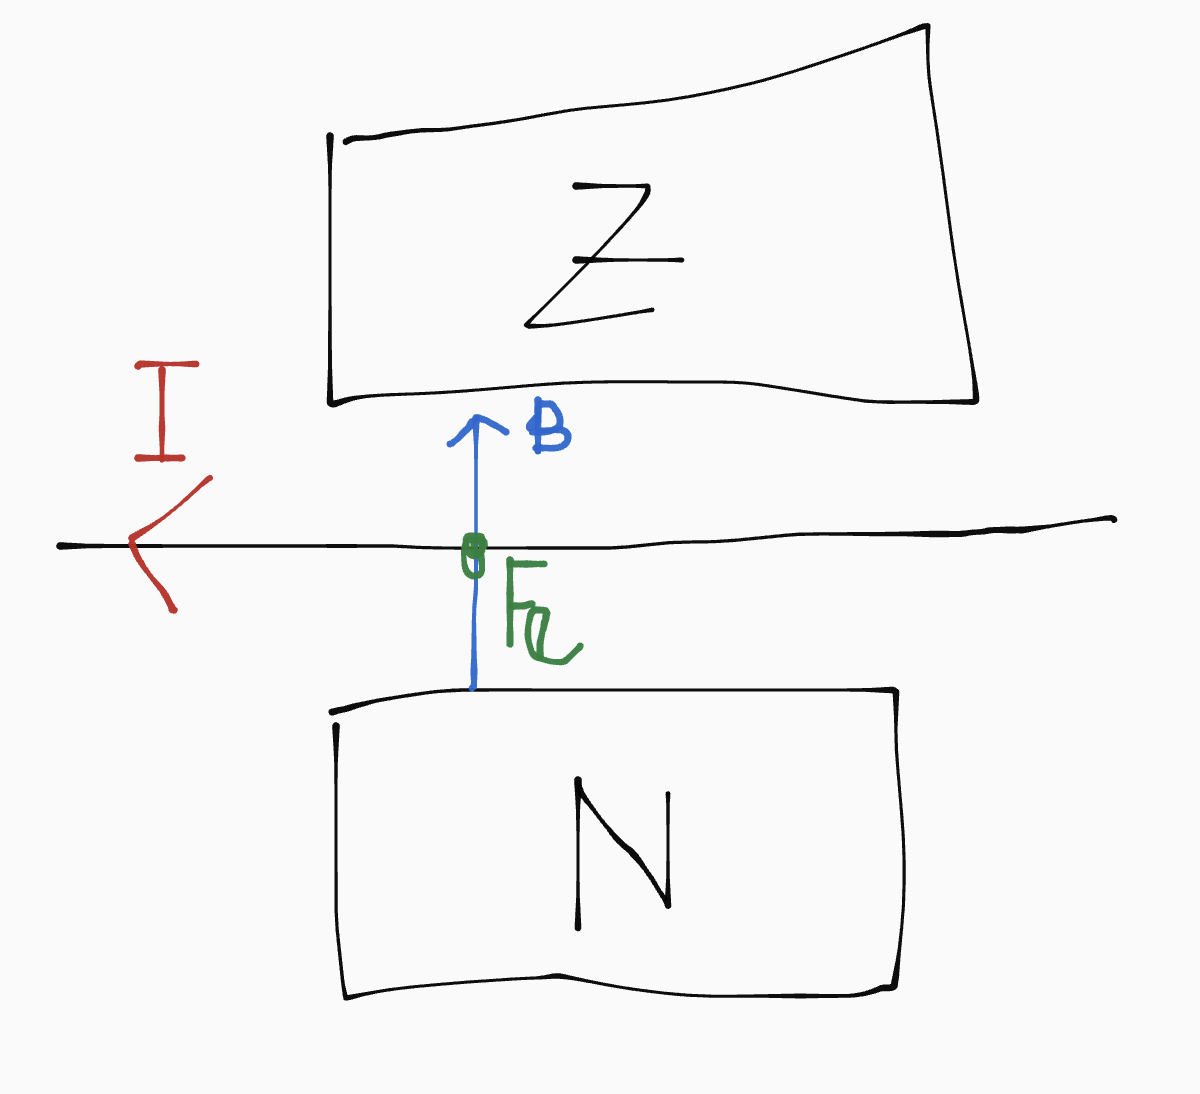 Z
I
B
FL
N